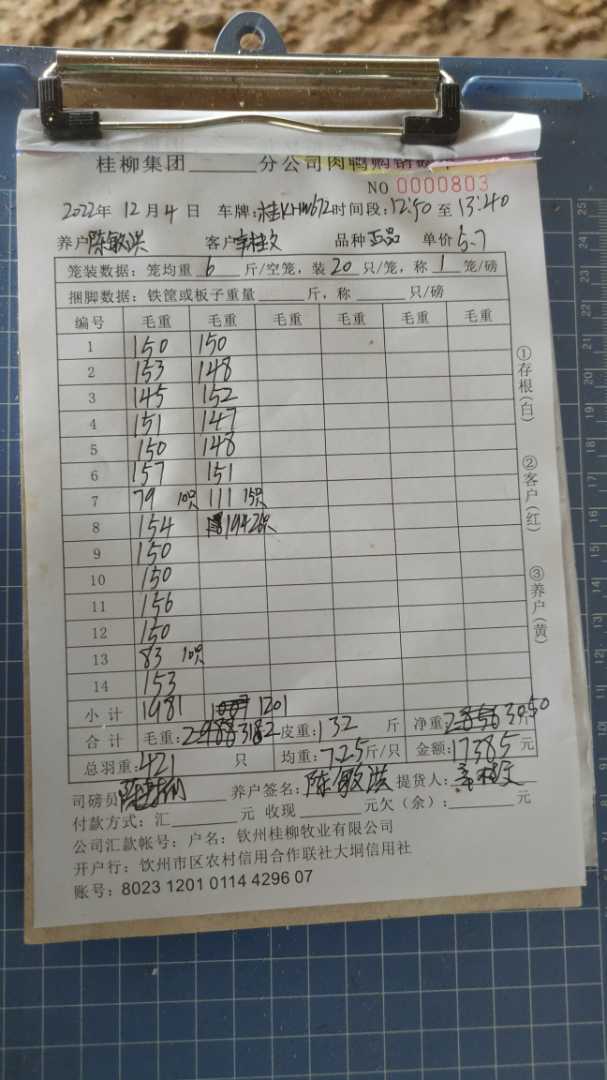 桂柳集团______分公司肉鸭购销
NO 0000803
2022年 12月4日 车牌:桂KHW672时间段:12:50至13:40
养户陈敏洪 客户 品种正品 单价5.7
笼装数据:笼均重6斤/空笼,装20只/笼,称1笼/磅
捆脚数据:铁筐或板子重量______斤,称______只/磅
编号 毛重 毛重 毛重 毛重 毛重 毛重
1 150 150
2 153 148
3 145 152
4 151 147
5 150 148
6 157 151
7 79 10只 111 15只
8 154 194 26只
9 150
10 150
11 156
12 150
13 83 10只
14 153
小计 1981 1201
合计 毛重:3182 皮重:132 斤 净重:3050斤
总羽重:421 只 均重:7.25斤/只 金额:17385元
司磅员 养户签名:陈敏洪 提货人:
付款方式:汇______元 收现______元欠(余):______元
公司汇款帐号:户名:钦州桂柳牧业有限公司
开户行:钦州市区农村信用合作联社大垌信用社
账号:8023 1201 0114 4296 07
①存根(白)
②客户(红)
③养户(黄)
25
24
23
22
21
20
19
18